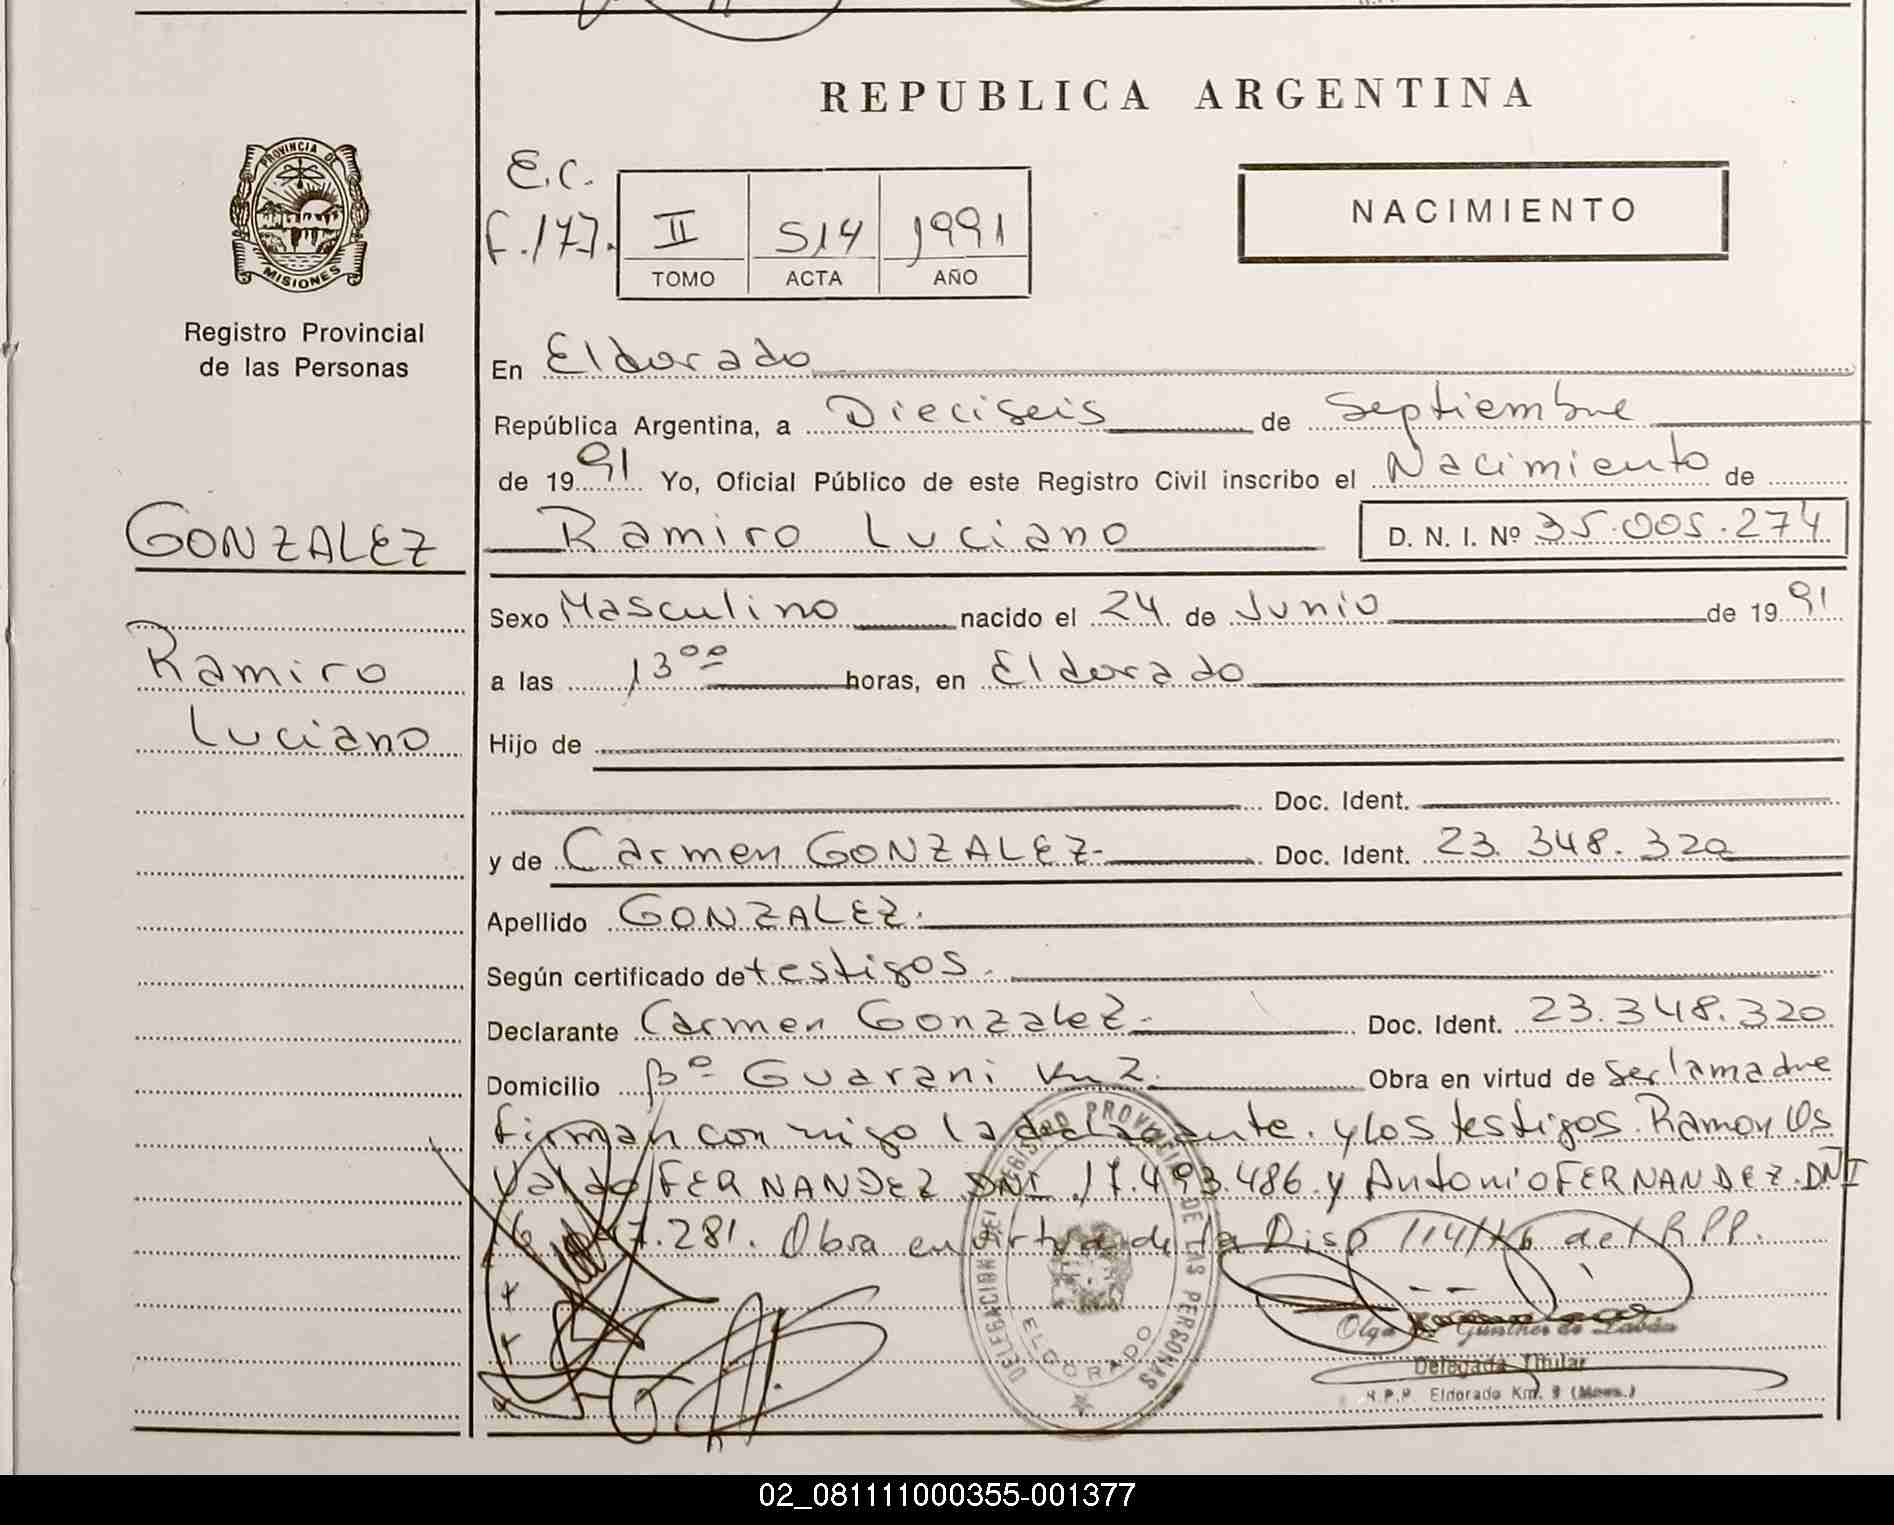 REPUBLICA ARGENTINA
PROVINCIA DE
MISIONES
Registro Provincial
de las Personas
E.C.
F.177.
II 514 1991
TOMO ACTA AÑO
NACIMIENTO
En Eldorado
República Argentina, a Dieciseis de Septiembre
de 1991 Yo, Oficial Público de este Registro Civil inscribo el Nacimiento de
GONZALEZ
Ramiro Luciano D. N. I. Nº 35.005.274
Sexo Masculino nacido el 24 de Junio de 1991
Ramiro
a las 13 00 horas, en Eldorado
Luciano
Hijo de
Doc. Ident.
y de Carmen GONZALEZ- Doc. Ident. 23.348.320
Apellido GONZALEZ.
Según certificado de testigos.
Declarante Carmen Gonzalez. Doc. Ident. 23.348.320
Domicilio Bº Guarani Km 2. Obra en virtud de Ser la madre
firman con migo la declarante. y los testigos. Ramon Os
valdo FERNANDEZ DNI 17.493.486. y Antonio FERNANDEZ. DNI
7.281. Obra en virtud de la Disp 114/ del RPP.
DELEGACION DEL REGISTRO PROVINCIAL DE LAS PERSONAS
ELDORADO
Olga Gunther de
Delegada Titular
R.P.P. Eldorado Km. 9 (Mnes.)
02_081111000355-001377